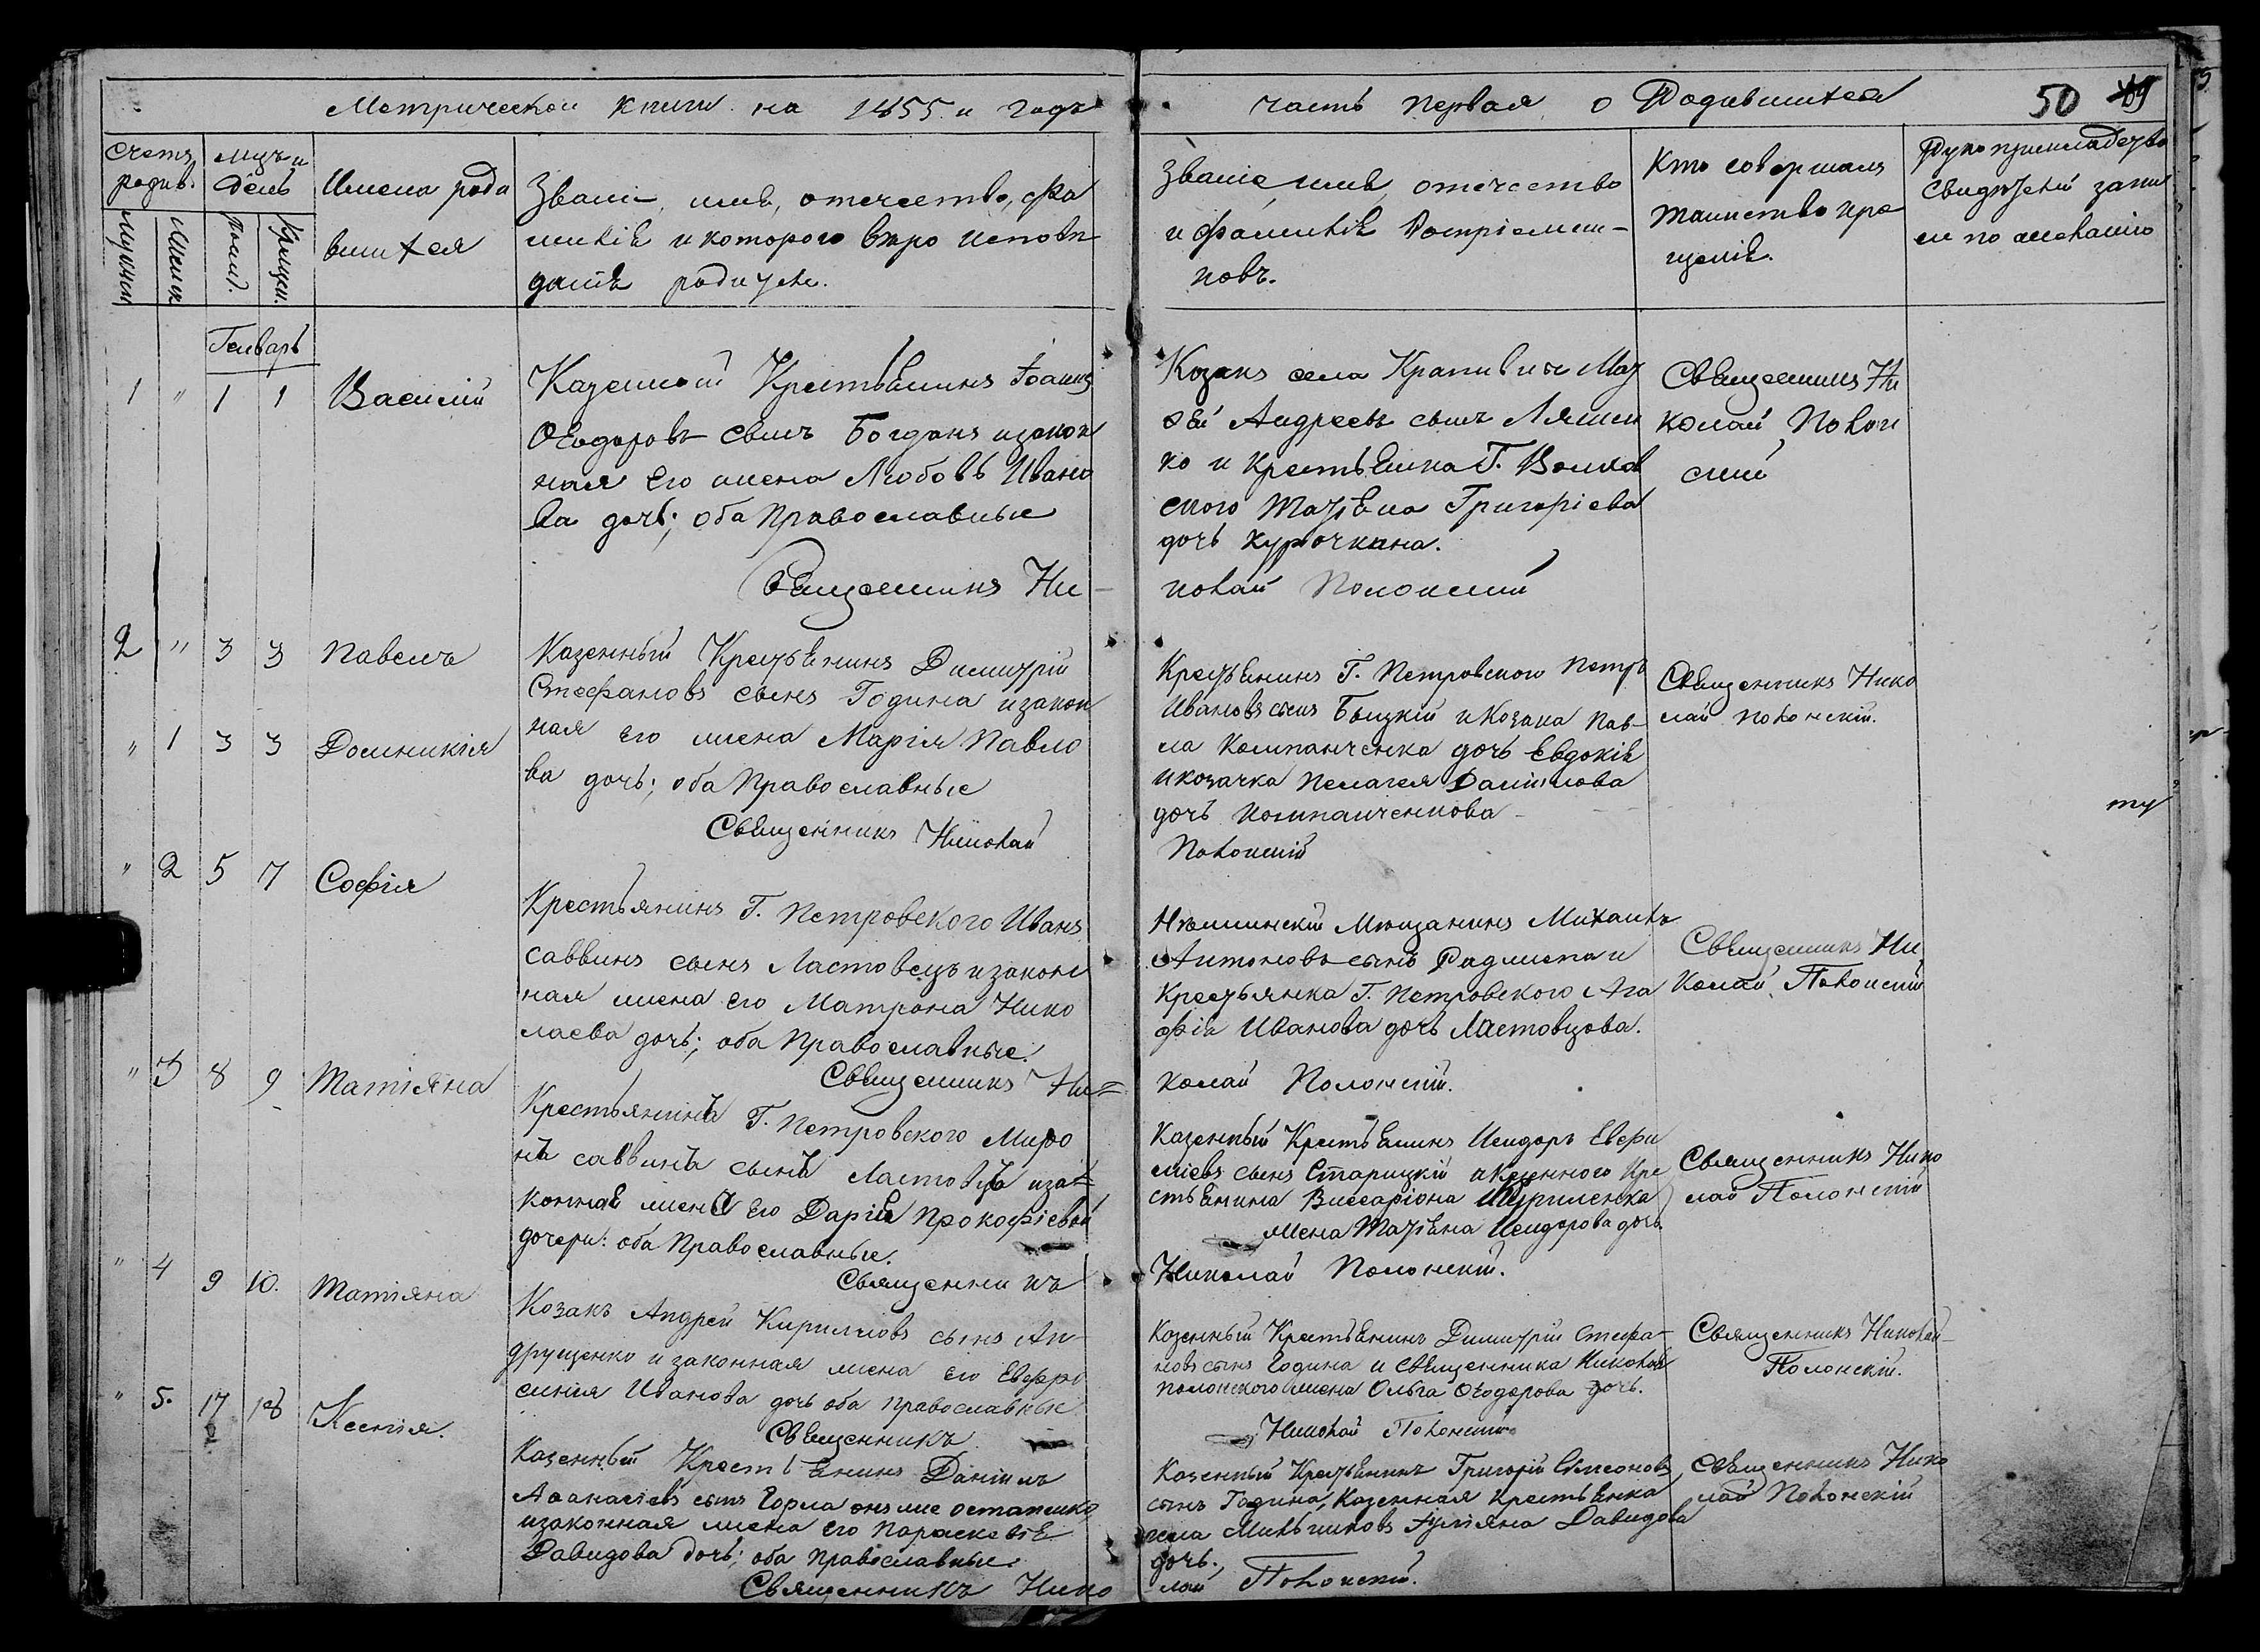 Метрической книги на 1855 и годъ часть первая о Родившихся 50
Счетъ родив.
Мцъ и день
Имена роди
вшихся
Званіе, имя, отчество, фа
милія и которого веро испове
данія родители.
Званіе, имя, отечество
и фамилія воспріемни-
ковъ.
Кто совершалъ
таинство кре
щенія.
Рукоприкладство
свидетелей запи
си по желанію
Мужеск
Женск
Рожд.
Крещен.
Генварь
1 " 1 1 Василій
Казенный Крестьянинъ Іоаннъ
Ѳеодоровъ сынъ Богданъ и закон
ная его жена Любовь Ивано
ва дочь; оба Православные
Священникъ Ни-
Козакъ села Крапивны Мат
ѳей Андреевъ сынъ Ляшен
ко и крестьянка Г.
ского Татіяна Григоріева
дочь Курочкина.
колай Полонскій
Священникъ Ни
колай Полон
скій
2 " 3 3 Павелъ
" 1 3 3 Домникія
Казенный Крестьянинъ Димитрій
Стефановъ сынъ Година и закон
ная его жена Марія Павло
ва дочь; оба Православные
Священникъ Николай
Крестьянинъ Г. Петровского Петръ
Ивановъ сынъ Быцкій и Козака Пав-
ла Компанченка дочь Евдокія
и козачка Пелагея Даніилова
дочь Компанченкова
Полонскій
Священникъ Нико
лай Полонскій.
" 2 5 7 Софія
Крестьянинъ Г. Петровского Иванъ
Саввинъ сынъ Ластовецъ и закон
ная жена его Матрона Нико
лаева дочь; оба Православные.
Священникъ Ни=
Нежинскій Мещанинъ Михаилъ
Антоновъ сынъ и
Крестьянка Г. Петровского Ага
фія Иванова дочь Ластовцова.
колай Полонскій.
Священникъ Ни
колай Полонскій
" 3 8 9 Татіяна
Крестьянинъ Г. Петровского Миро
нъ Саввинъ сынъ Ластовецъ и за=
конная жена его Дарія Прокофіевой
дочери: оба Православные.
Священникъ
Казенный Крестьянинъ Исидоръ Евфи
міевъ сынъ Старицкій и Казенного Кре
стьянина Виссаріона Шуриленка
жена Татіяна Исидорова дочь.
Николай Полонскій.
Священникъ Нико
лай Полонскій
" 4 9 10. Татіяна
Козакъ Андрей Кирилловъ сынъ Ан-
друщенко и законная жена его Евфро
синія Иванова дочь оба православные
Священникъ
Казенный Крестьянинъ Димитрій Стефа-
новъ сынъ Година и Священника Николая
Полонского жена Ольга Ѳеодорова дочь.
Николай Полонскій
Священникъ Николай
Полонскій.
" 5. 17 18 Ксенія.
Казенный Крестьянинъ Даніилъ
Аѳанасіевъ сынъ Горла онъ же Остапенко
и законная жена его Параскевія
Давидова дочь; оба православные.
Священникъ Нико
Казенный Крестьянинъ Григорій Симеоновъ
сынъ Година, Казенная крестьянка
села Мильниковъ Іуліяна Давидова
дочь.
лай Полонскій.
Священникъ Нико
лай Полонскій